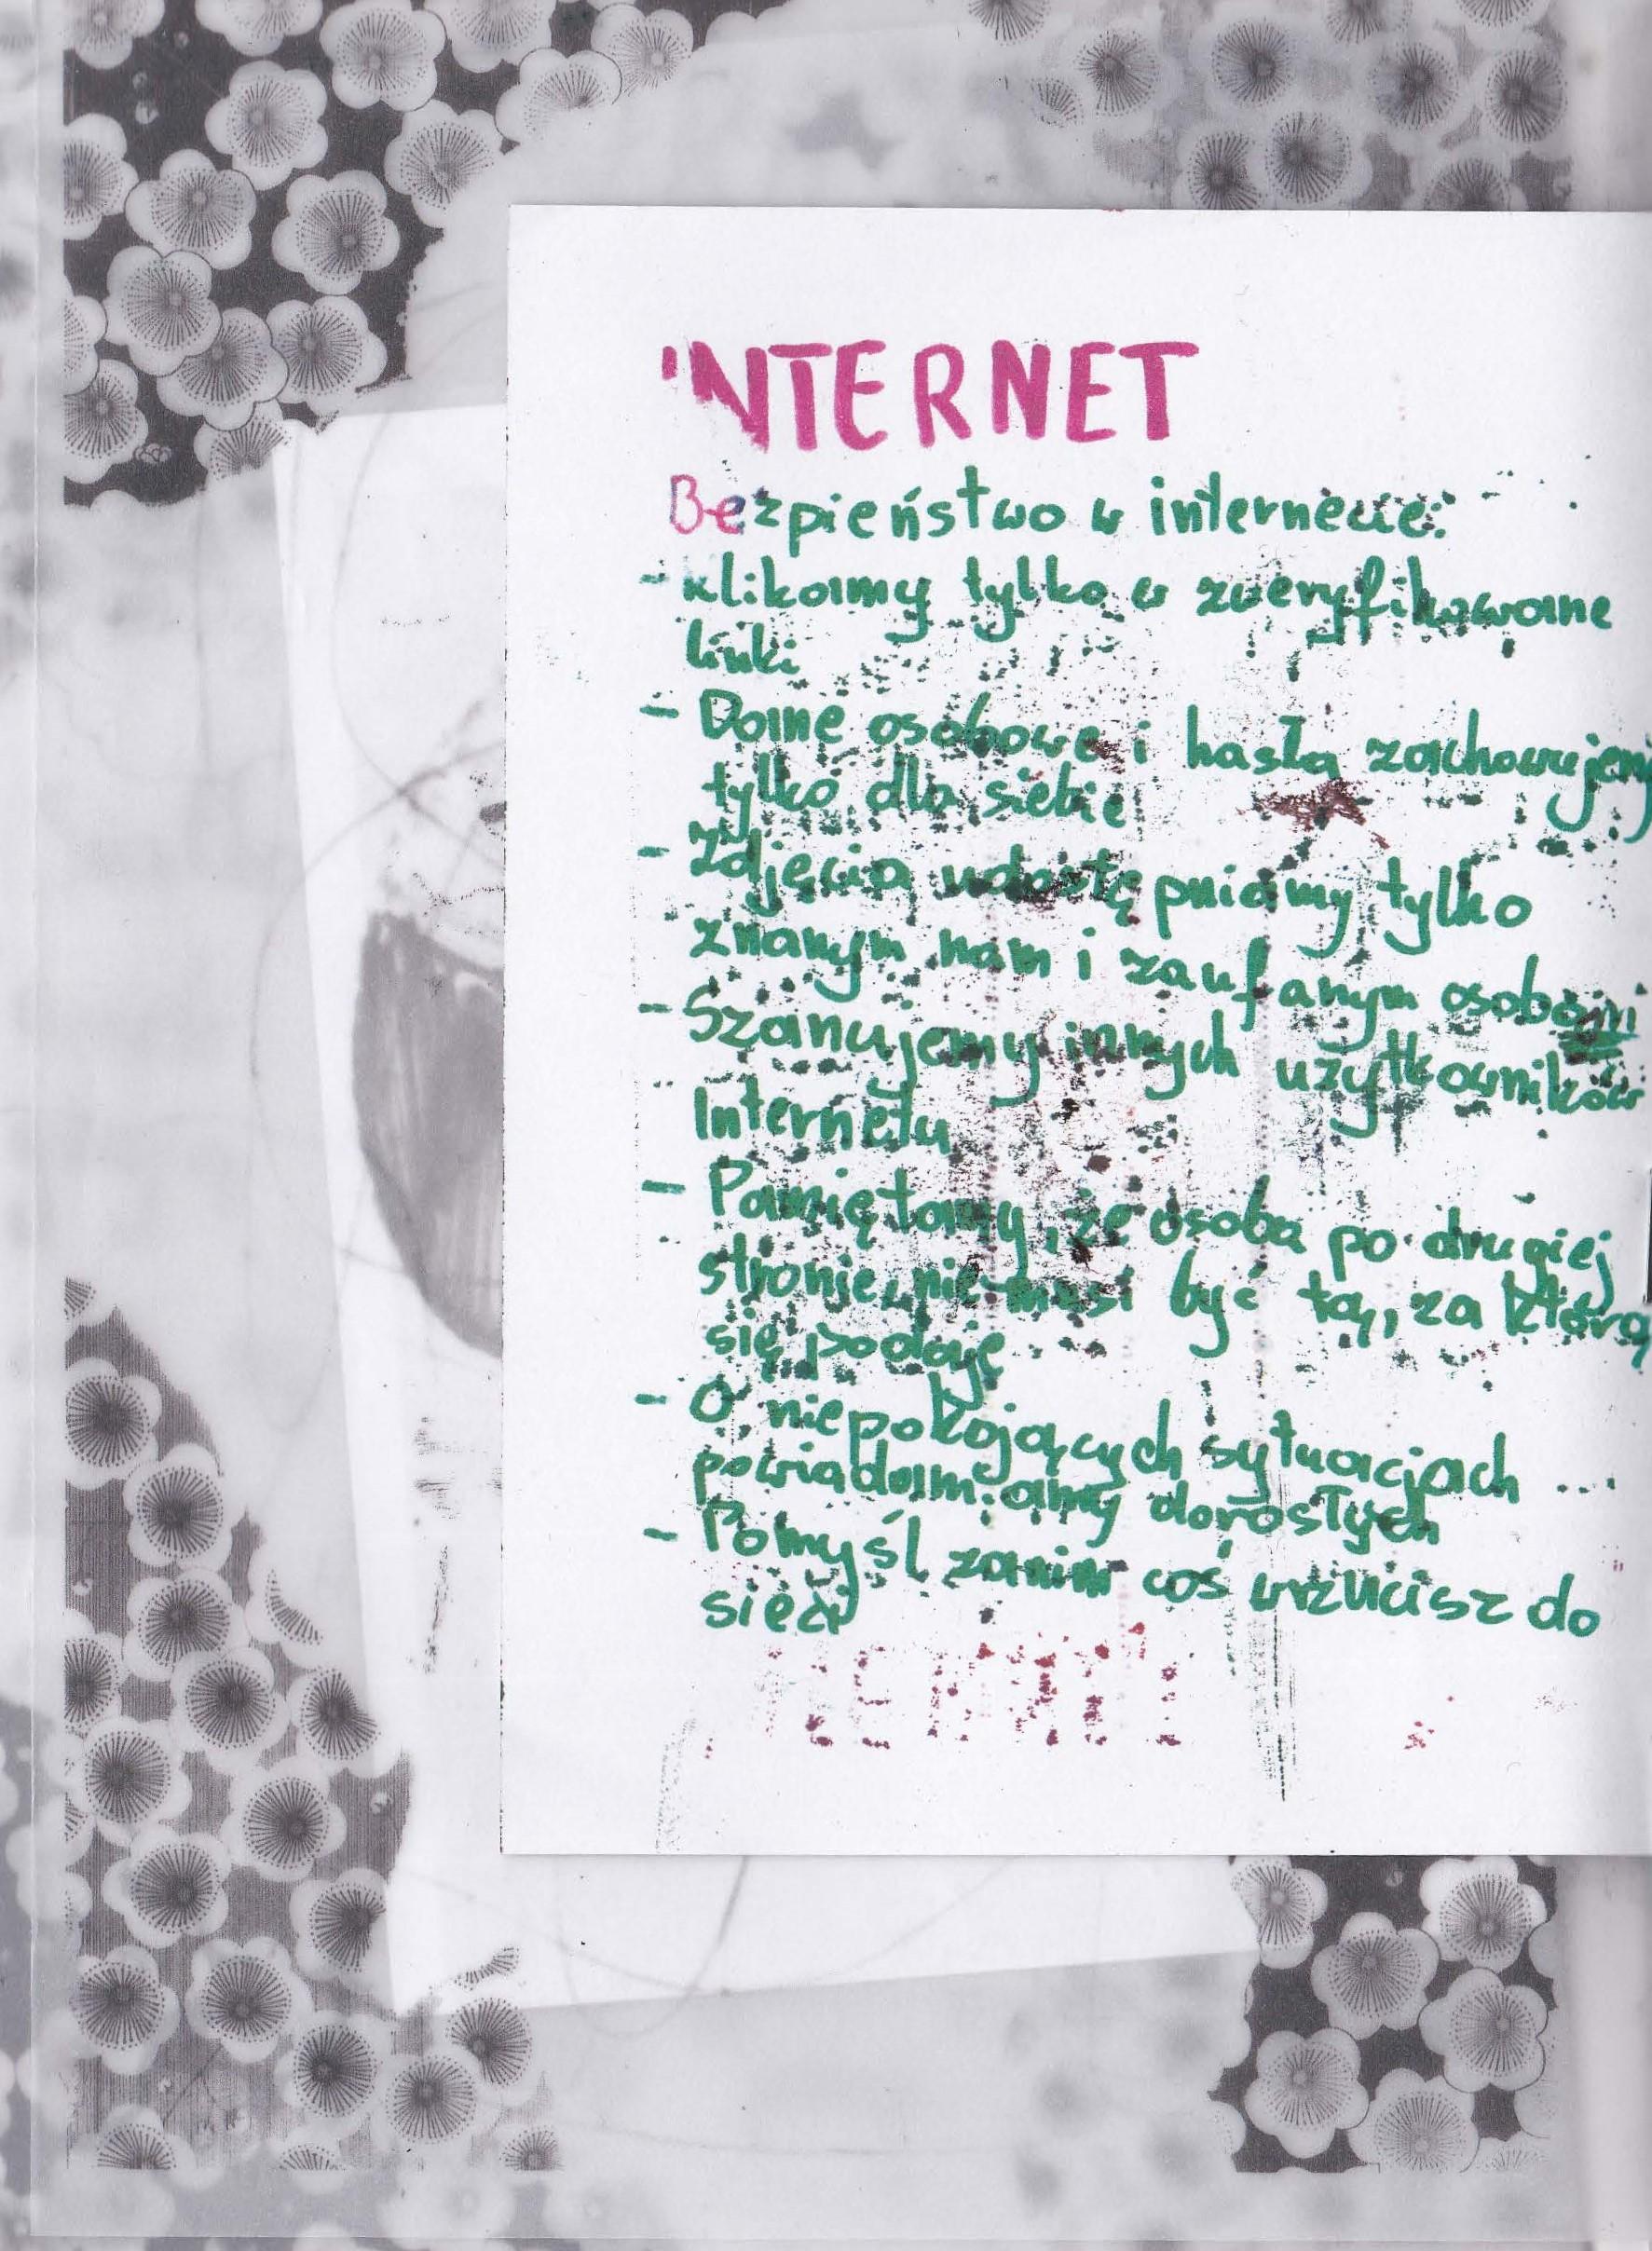 INTERNET
Bezpieństwo w internecie:
- klikamy tylko w zweryfikowane
linki
- Dane osobowe i hasła zachowujemy
tylko dla siebie
- Zdjęcia udostępniamy tylko
znanym nam i zaufanym osobom
- Szanujemy innych użytkowników
Internetu
- Pamiętamy, że osoba po drugiej
stronie, nie musi być tą, za którą
się podaje
- O niepokojących sytuacjach ...
powiadamiamy dorosłych
- Pomyśl zanim coś wrzucisz do
sieci